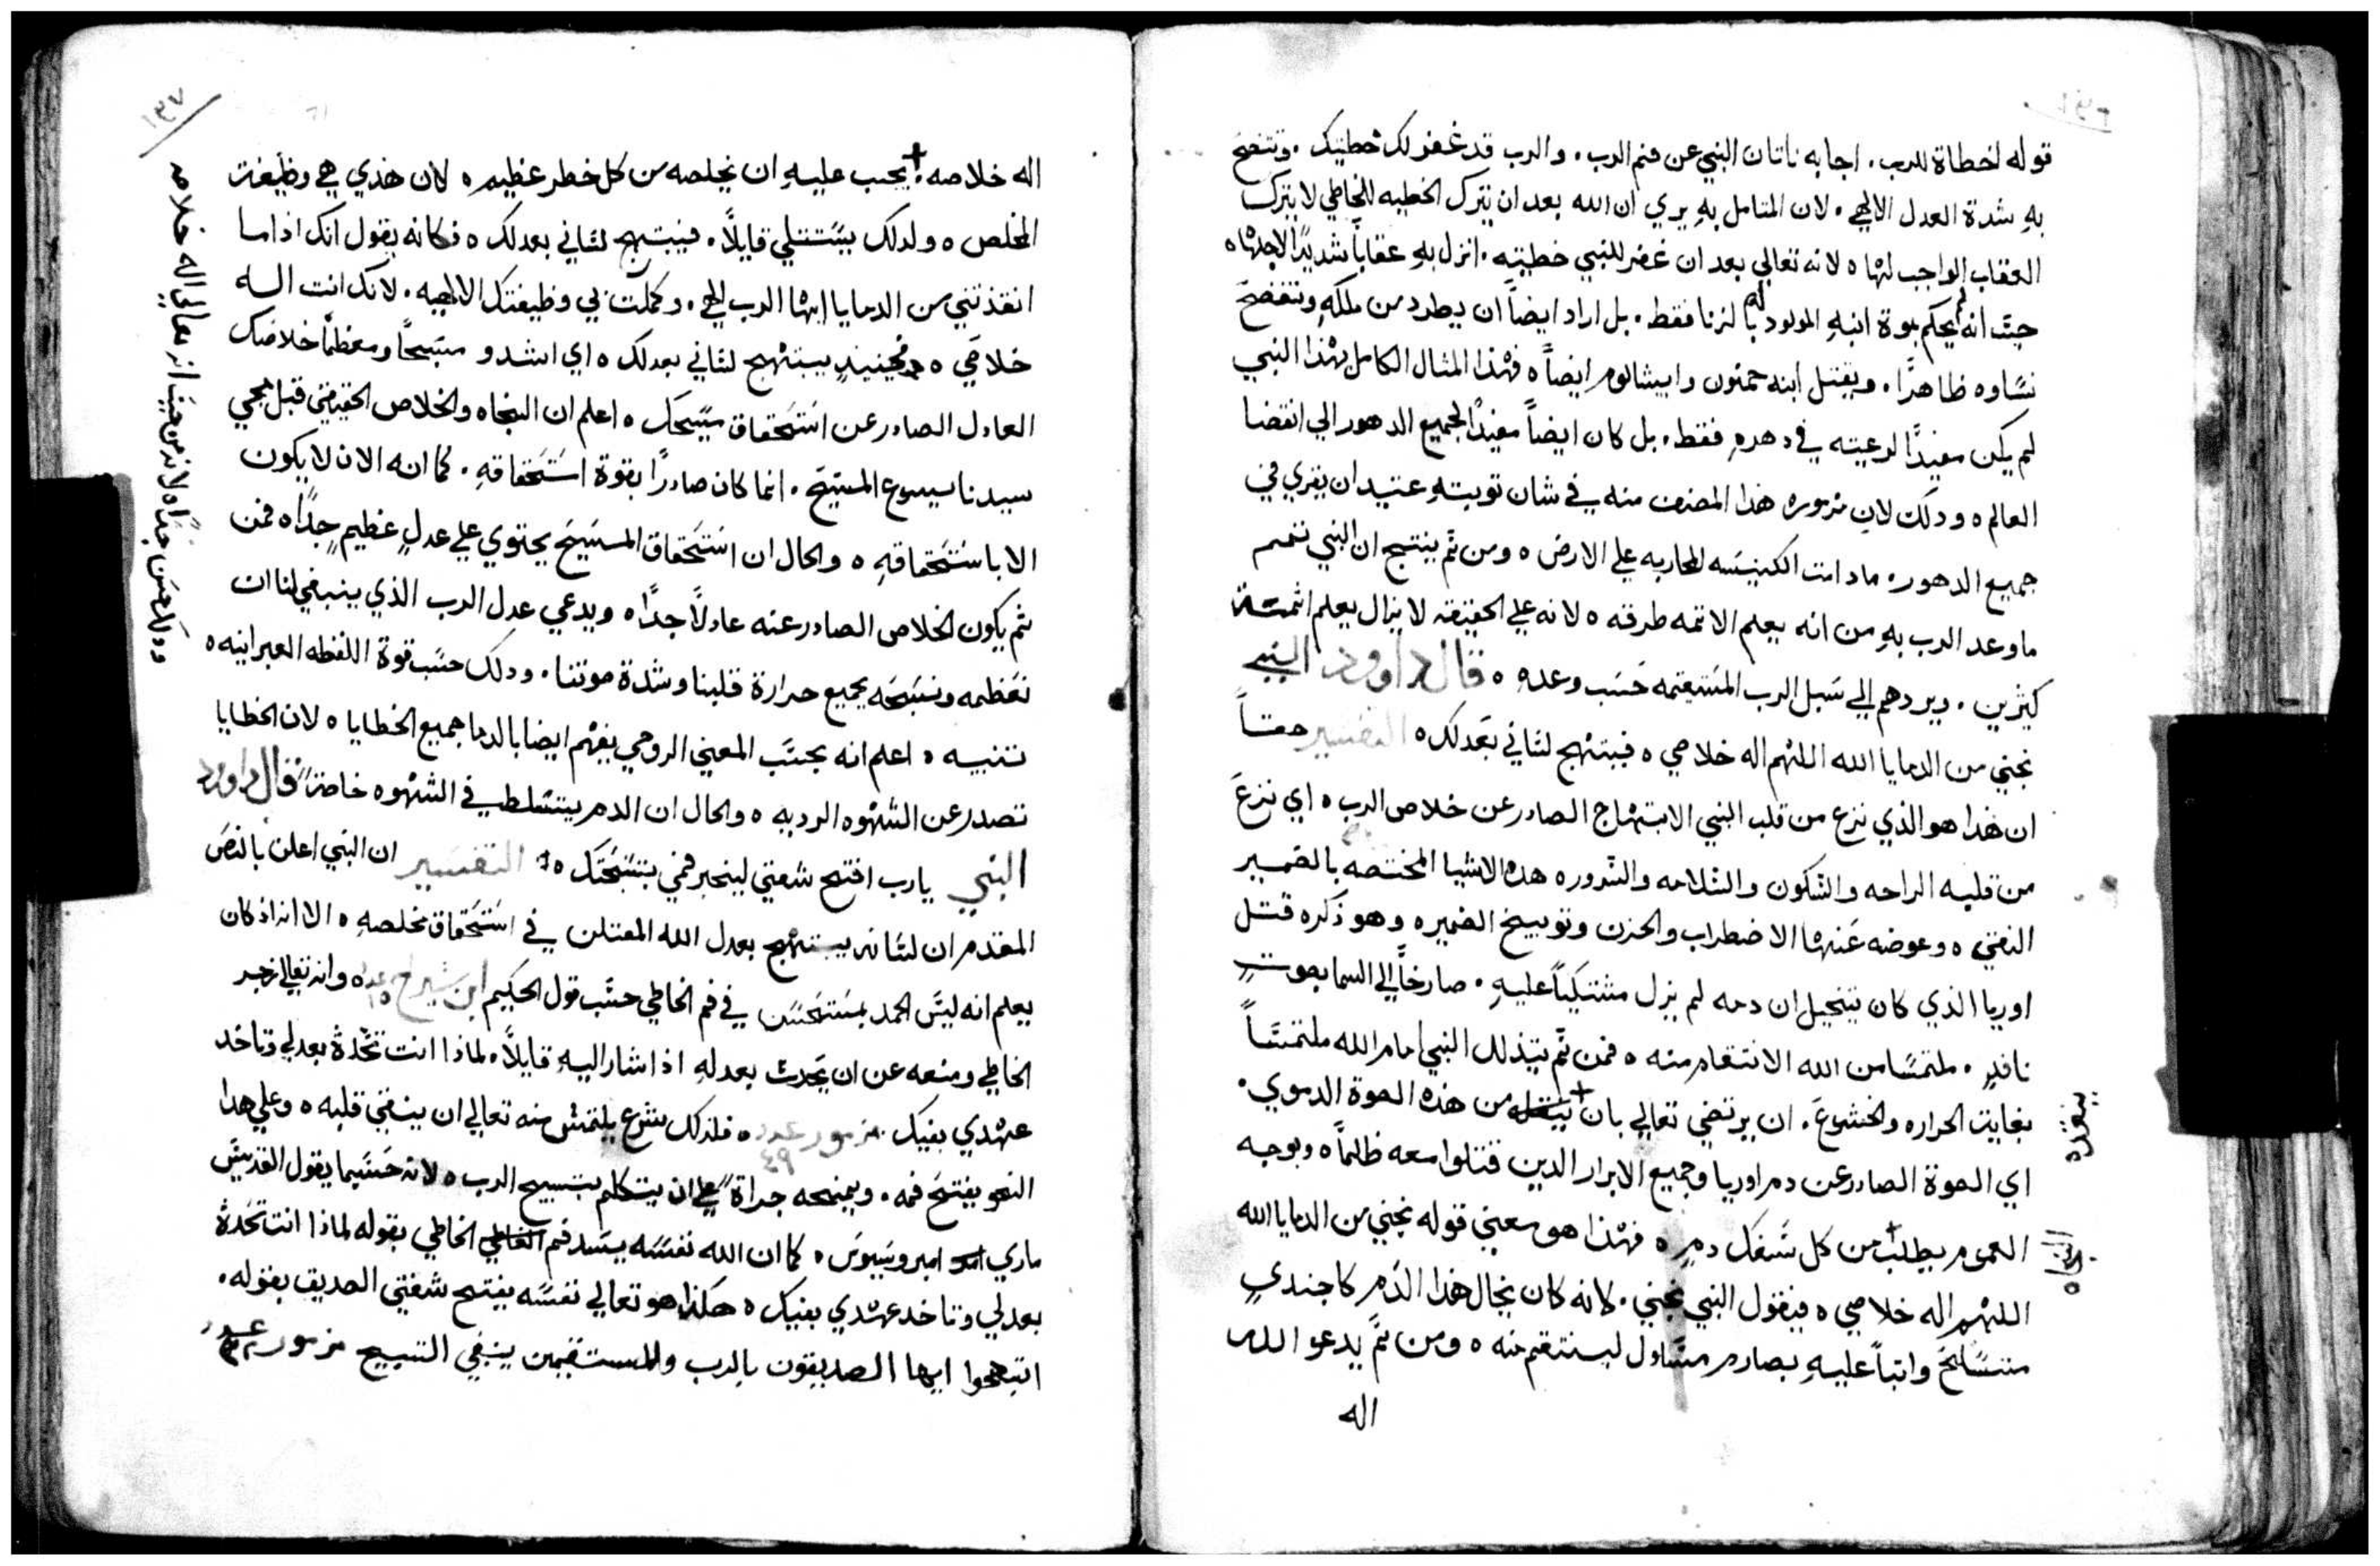 قوله اخطاة للرب. اجابه ناتان النبي عن فم الرب. والرب قد غفر لك خطيتك. وتتضح
به شدة العدل الالهي. لان المتامل به يري ان الله بعد ان يترك الخطيه للخاطي لا يترك
العقاب الواجب لها ه لانه تعالي بعد ان غفر للنبي خطيته. انزل به عقاباً شديدًا لاجلها ه
حتي انه لم يحكم بموة ابنه المولود له بالزنا فقط. بل اراد ايضاً ان يطرد من ملكه وتتفضح
نساوه ظاهرًا. ويقتل ابنه حمنون وابيشالوم ايضاً ه فهذا المثال الكامل بهذا النبي
لم يكن مفيدًا لرعيته في دهره فقط. بل كان ايضاً مفيدًا لجميع الدهور الي انقضا
العالم ه ودلك لان مزموره هذا المصنف منه في شان توبته عتيد ان يقري في
جميع الدهور ه مادامت الكنيسه المحاربه علي الارض ه ومن ثم ينتج ان النبي تمم
ما وعد الرب به من انه يعلم الاثمه طرقه ه لانه علي الحقيقه لا يزال يعلم اثمة
كثيرين. ويردهم الي سبل الرب المستقيمه حسب وعده ه قال داوود النبي
نجني من الدمايا الله اللهم اله خلاصي ه فيبتهج لساني بعدلك ه التفسير حقاً
ان هذا هو الذي نزع من قلب النبي الابتهاج الصادر عن خلاص الرب ه اي نزع
من قلبه الراحه والسكون والسلامه والسرور ه هده الاشيا المختصه بالضمير
النقي ه وعوضه عنها الاضطراب والحزن وتوبيخ الضمير ه وهو ذكره قتل
اوريا الذي كان يتخيل ان دمه لم يزل مشتكياً عليه. صارخاً الي السما بصوت
نافد. ملتمسًا من الله الانتقام منه ه فمن ثم يتذلل النبي امام الله ملتمساً
بغاية الحراره والخشوع. ان يرتضي تعالي بان من هذه الصوة الدموي.
ينقده
اي الصوة الصادر عن دم اوريا وجميع الابرار الدين قتلوا معه ظلماً ه وبوجه
العموم يطلب من كل سفك دم ه فهذا هو معني قوله نجني من الدمايا الله
النجاه
اللهم اله خلاصي ه فيقول النبي نجني. كانه كان يخال هذا الدم كاجندي
متسلح واثباً عليه بصارم مسلول لينتقم منه ه ومن ثم يدعو الله
اله
١٣٧
اله خلاصه. يجب عليه ان يخلصه من كل خطر عظيم ه لان هذي هي وظيفة
المخلص ه ولدلك يستتلي قايلاً. فيبتهج لساني بعدلك ه فكانه يقول انك اذا ما
انقذتني من الدمايا ايها الرب الهي. وكملت بي وظيفتك الالهيه. لانك انت اله
خلاصي ه فحينيذ يبتهج لساني بعدلك ه اي انشد و مسبحاً ومعظمًا خلاصك
العادل الصادر عن استحقاق مسيحك ه اعلم ان النجاه والخلاص الحقيقي قبل مجي
سيدنا يسوع المسيح. انما كان صادرًا بقوة استحقاقه. كما انه الان لا يكون
الا باستحقاقه ه والحال ان استحقاق المسيح يحتوي علي عدل عظيم جدًا ه فمن
ثم يكون الخلاص الصادر عنه عادلاً جدًا ه ويدعي عدل الرب الذي ينبغي لنا ان
نعظمه ونسبحه بجميع حرارة قلبنا وشدة صوتنا. ودلك حسب قوة اللفظه العبرانيه ه
تنبيه ه اعلم انه بحسب المعني الروحي يفهم ايضا بالدما جميع الخطايا ه لان الخطايا
تصدر عن الشهوه الرديه ه والحال ان الدم يتسلط في الشهوه خاصةً قال داوود
النبي يارب افتح شفتي ليخبر فمي بتسبحتك ه التفسير ان النبي اعلن بالنص
المقدم ان لسانه يبتهج بعدل الله المعتلن في استحقاق مخلصه ه الا انه اذ كان
يعلم انه ليس الحمد بمستحسن في فم الخاطي حسب قول الحكيم ابن شيراخ عدد ١٥ ه وانه تعالي زجر
الخاطي ومنعه عن ان يحدث بعدله اذ اشار اليه قايلاً. لماذا انت تحدة بعدلي وتاخد
عهدي بفيك مزمور عدد ٤٩ ه فلذلك شرع يلتمس منه تعالي ان ينقي قلبه ه وعلي هدا
النحو يفتح فمه. ويمنحه جراةً علي ان يتكلم بتسبيح الرب ه لانه حسبما يقول القديس
ماري امبروسيوس ه كما ان الله نفسه يسد فم الخاطي بقوله لماذا انت تحدة
بعدلي وتاخد عهدي بفيك ه هكذا هو تعالي نفسه يفتح شفتي الصديق بقوله.
ابتهجوا ايها الصديقون بالرب وللمستقيمين ينبغي التسبيح مزمور عدد ٣٢